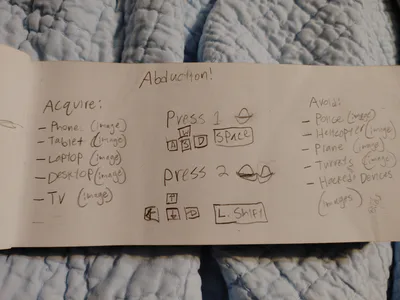 Abduction!
Acquire:
- Phone (image)
- Tablet (image)
- Laptop (image)
- Desktop (image)
- TV (image)
Press 1
W
A S D Space
Press 2
L. Shift
Avoid:
- Police (image)
- Helicopter (image)
- Plane (image)
- Turrets (image)
- Hacked Devices
(images)